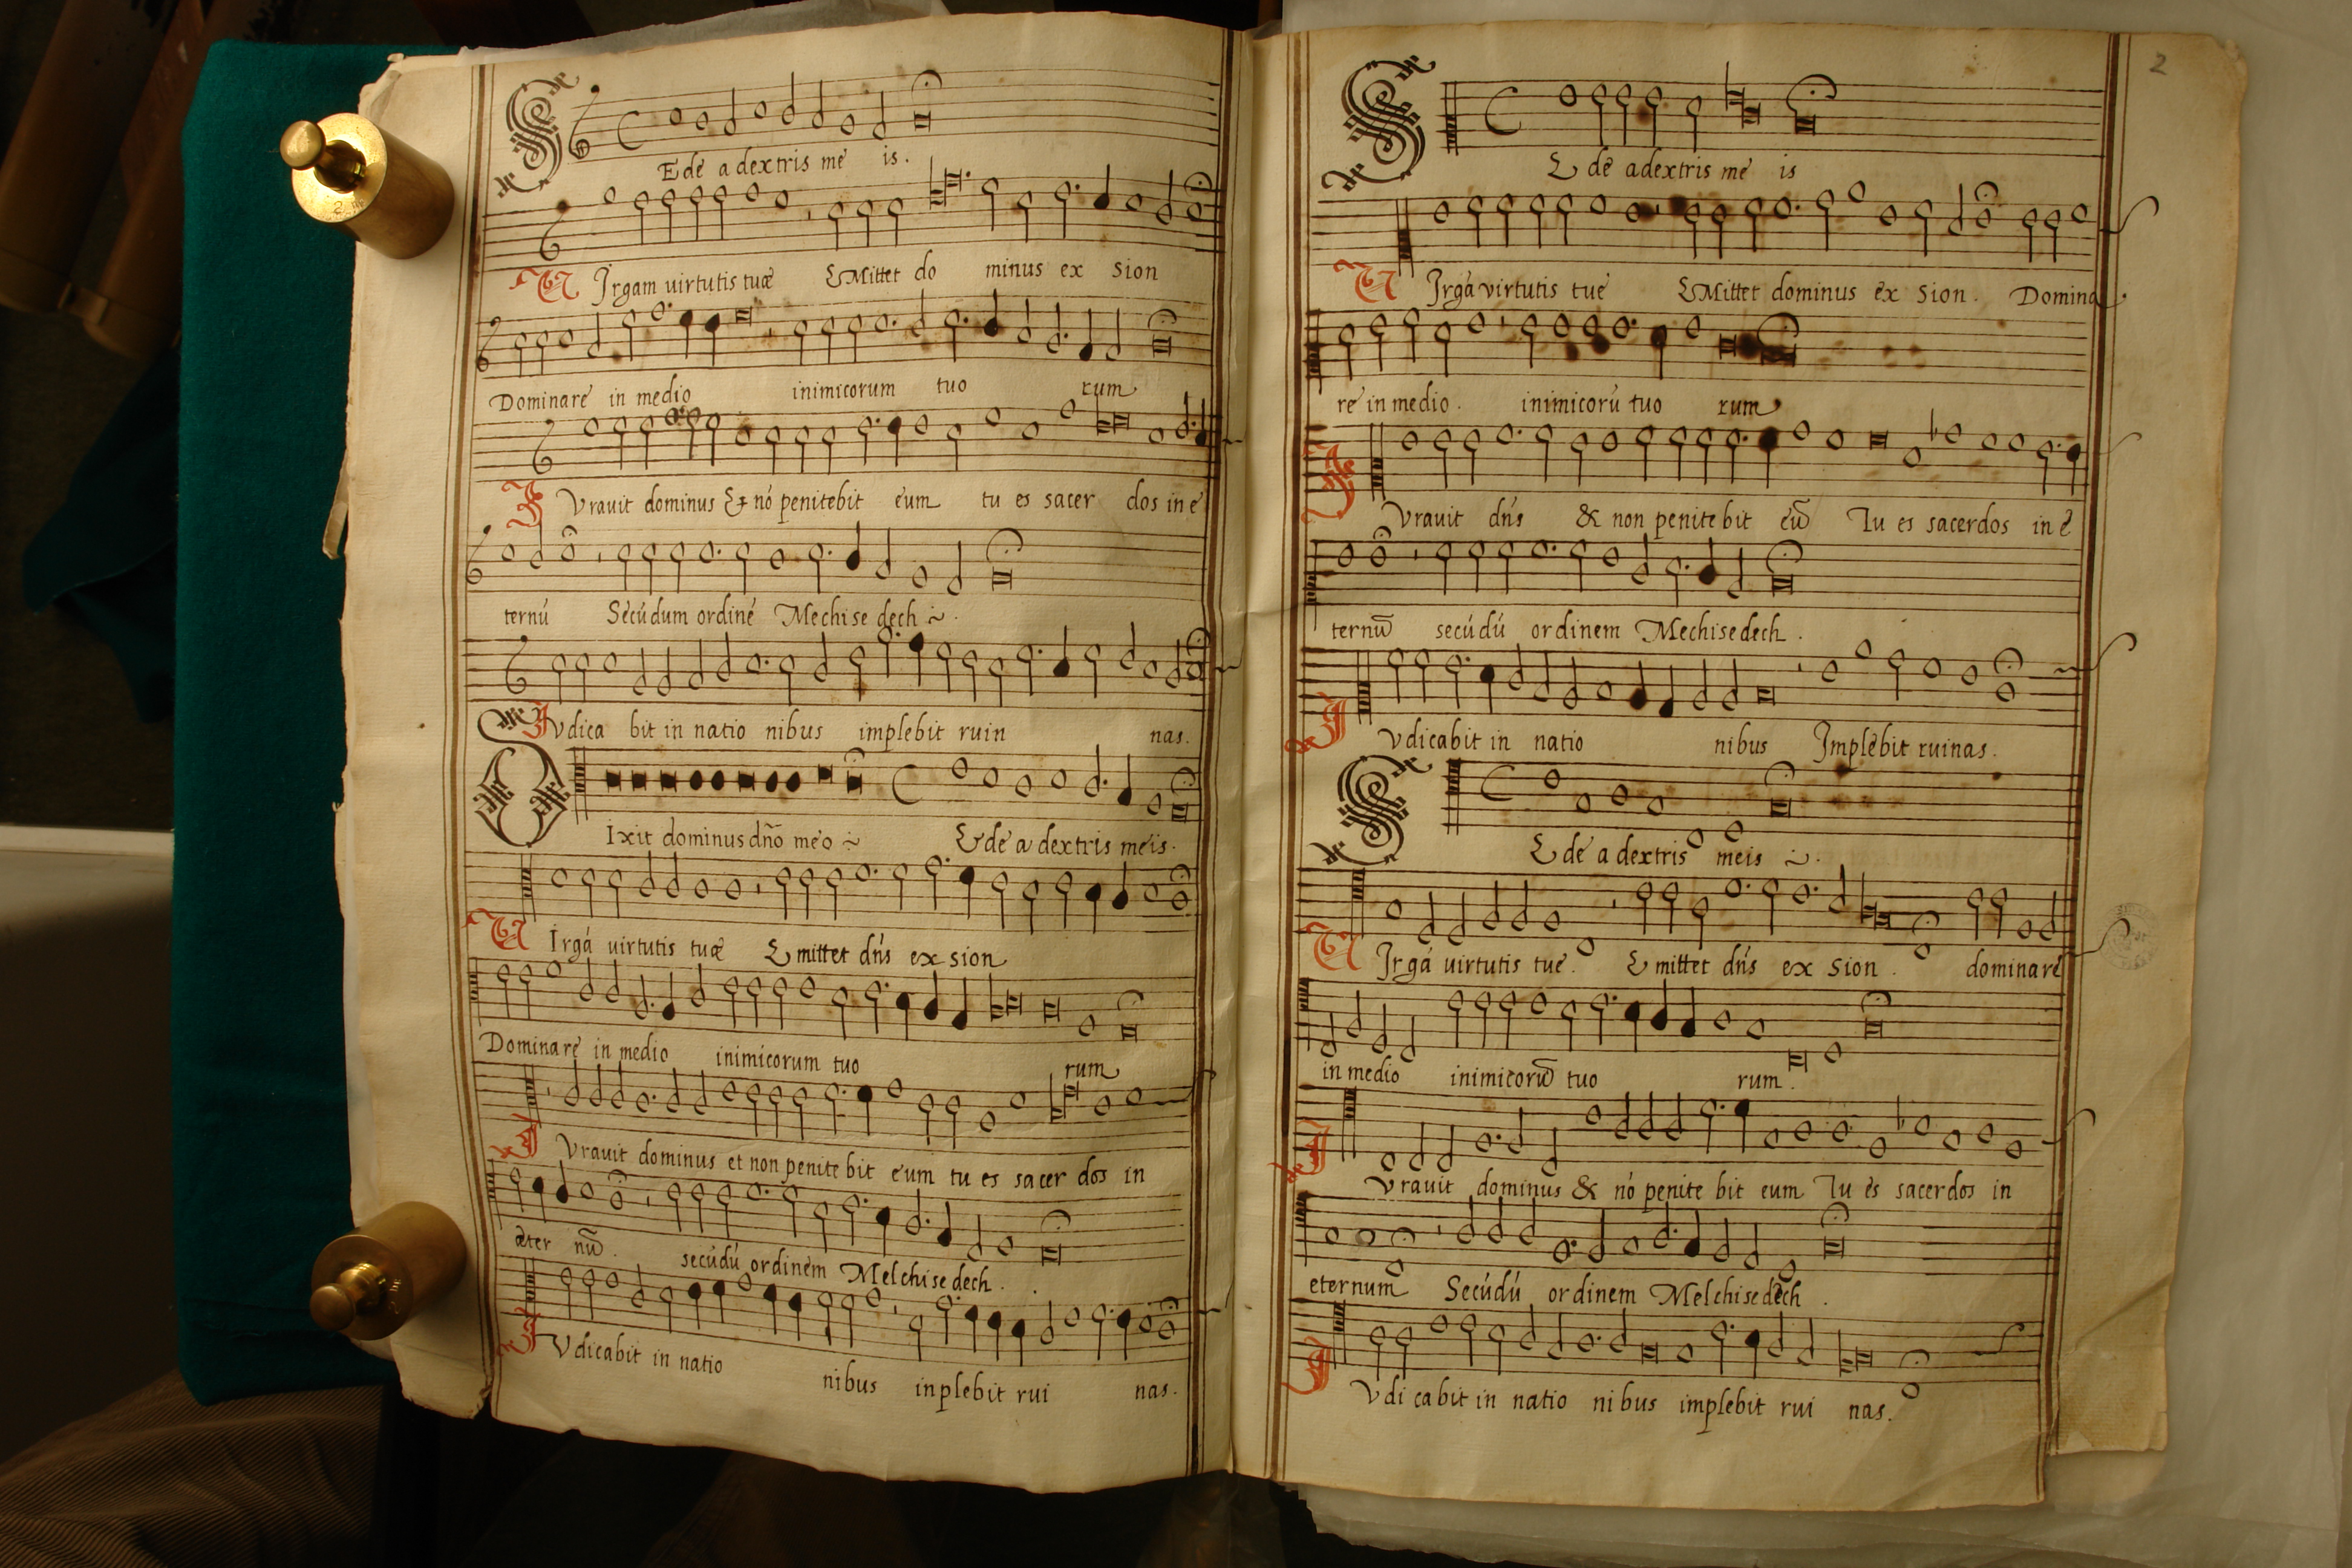 SEde a dextris me is.
VIrgam uirtutis tuæ EMittet do minus ex sion
Dominare in medio inimicorum tuo rum
IVrauit dominus & nó penitebit eum tu es sacer dos in e
ternú Secúdum ordiné Mechise dech ~.
IVdica bit in natio nibus implebit ruin nas.
DIxit dominus dño meo ~ Sede a dextris meis.
VIrgá uirtutis tuæ Emittet dńs ex sion
Dominare in medio inimicorum tuo rum
IVrauit dominus et non penite bit eum tu es sacer dos in
æter nū. secúdú ordinem Melchise dech.
IVdicabit in natio nibus inplebit rui nas.
2
SEde a dextris me is
VIrgá virtutis tue EMittet dominus ex sion. Domina
re in medio. inimicorú tuo rum
IVrauit dńs & non penite bit eū Tu es sacerdos in e
ternū secúdú ordinem Mechisedech.
IVdicabit in natio nibus Implebit ruinas.
SEde a dextris meis ~.
VIrgá uirtutis tue. Emittet dńs ex sion. dominare
in medio inimicorū tuo rum.
IVrauit dominus & nó penite bit eum Tu es sacerdos in
eternum Secúdú ordinem Melchisedech.
IVdi cabit in natio nibus implebit rui nas.